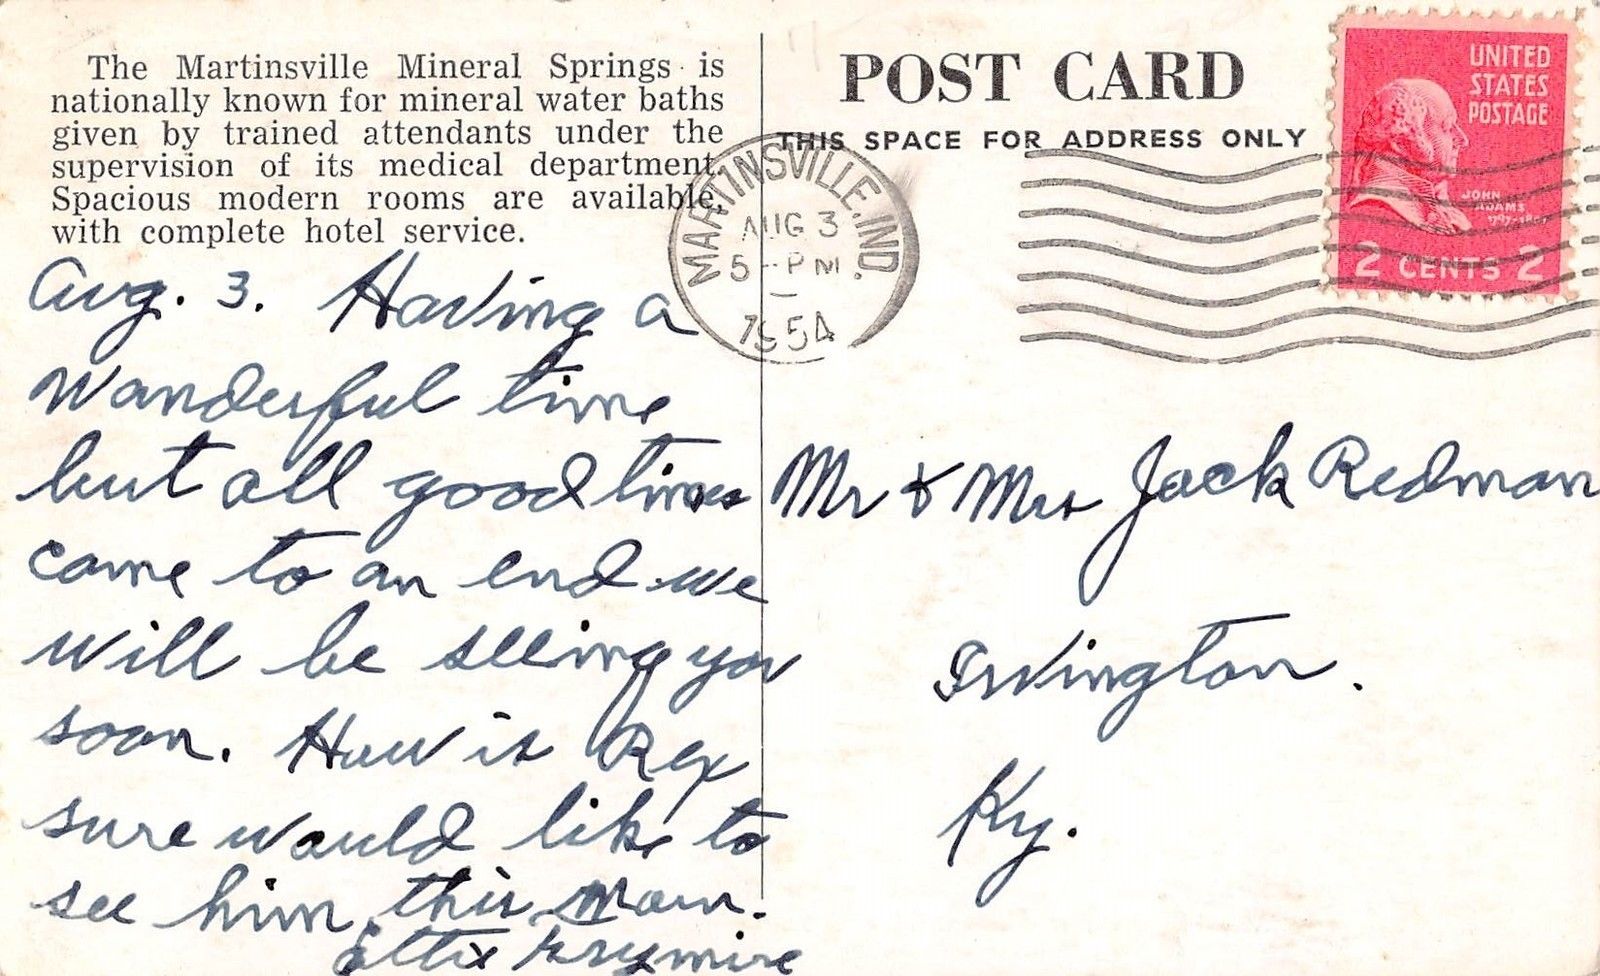 The Martinsville Mineral Springs is
nationally known for mineral water baths
given by trained attendants under the
supervision of its medical department.
Spacious modern rooms are available,
with complete hotel service.
Aug. 3. Having a
wanderful time
but all good times
come to an end we
will be seeing you
soon. How is Rex
sure would like to
see him this
POST CARD
THIS SPACE FOR ADDRESS ONLY
MARTINSVILLE, IND.
AUG 3
5 - PM
1954
UNITED
STATES
POSTAGE
JOHN
ADAMS
1797-1801
2 CENTS 2
Mr & Mrs Jack Redman
Irvington.
Ky.